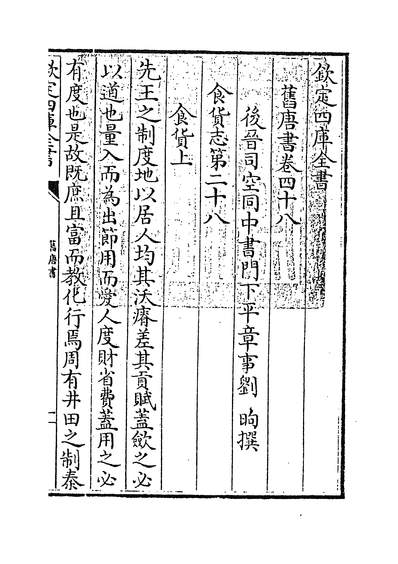 欽定四庫全書
舊唐書卷四十八
後晉司空同中書門下平章事劉昫撰
食貨志第二十八
食貨上
先王之制度地以居人均其沃瘠差其貢賦蓋斂之必
以道也量入而為出節用而愛人度財省費蓋用之必
有度也是故既庶且富而教化行焉周有井田之制秦
欽定四庫全書
舊唐書
一